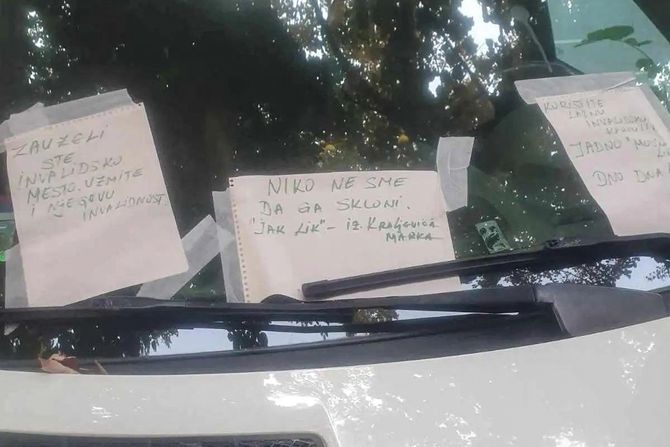 ZAUZELI
STE
INVALIDSKO
MESTO. UZMITE
I NJEGOVU
INVALIDNOST.
NIKO NE SME
DA GA SKLONI.
"JAK LIK" - IZ KRALJEVIĆA
MARKA
KORISTITE
LAŽNU
INVALIDSKU
JADNO
DNO DNA!